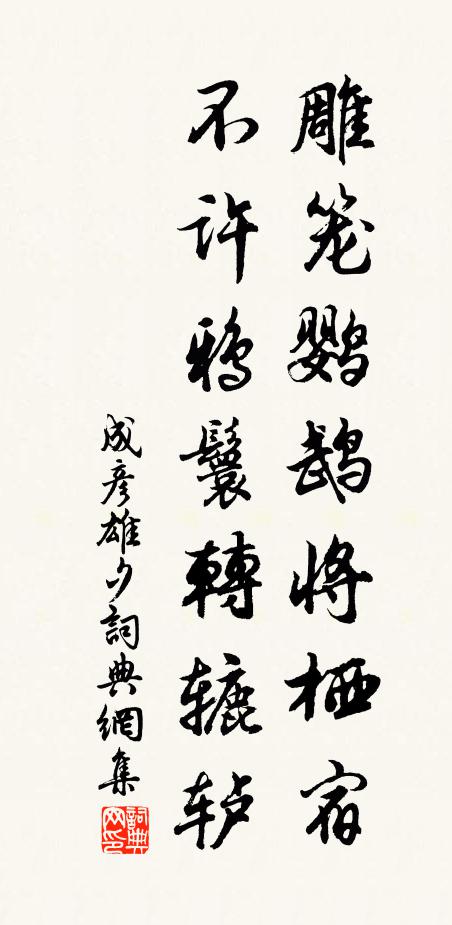 雕笼鹦鹉将栖宿
不许鸦鬟轉辘轳
成彦雄夕詞典網集
詞典网印